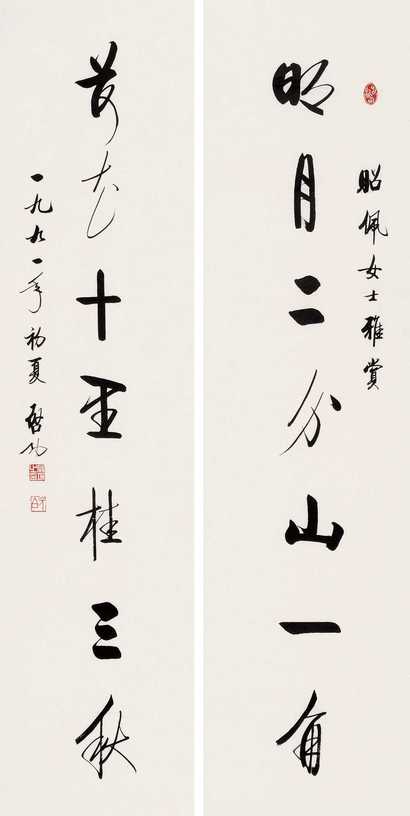 昭佩女士雅賞
明月二分山一角
荷花十里桂三秋
一九九一年初夏 启功